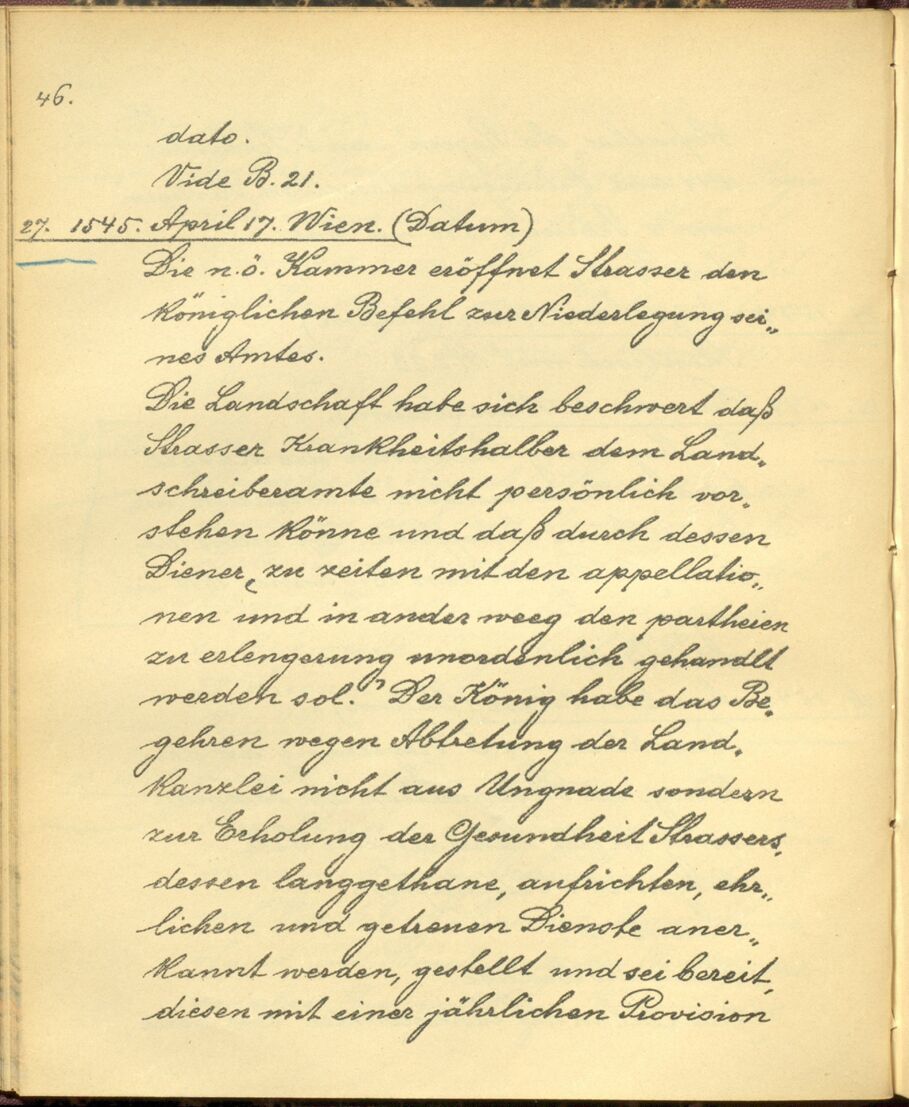 46.
dato.
Vide B. 21.
27. 1545. April 17. Wien. (Datum)
Die n. ö. Kammer eröffnet Strasser den
königlichen Befehl zur Niederlegung sei„
nes Amtes.
Die Landschaft habe sich beschwert daß
Strasser Krankheitshalber dem Land„
schreiberamte nicht persönlich vor„
stehen könne und daß durch dessen
Diener „zu zeiten mit den appellatio„
nen und in ander weeg den partheien
zu erlengerung unordenlich gehandlt
werden sol.“ Der König habe das Be„
gehren wegen Abtretung der Land„
kanzlei nicht aus Ungnade sondern
zur Erholung der Gesundheit Strassers,
dessen langgethane, aufrichten, ehr„
lichen und getreuen Dienste aner„
kannt werden, gestellt und sei bereit,
diesen mit einer jährlichen Provision